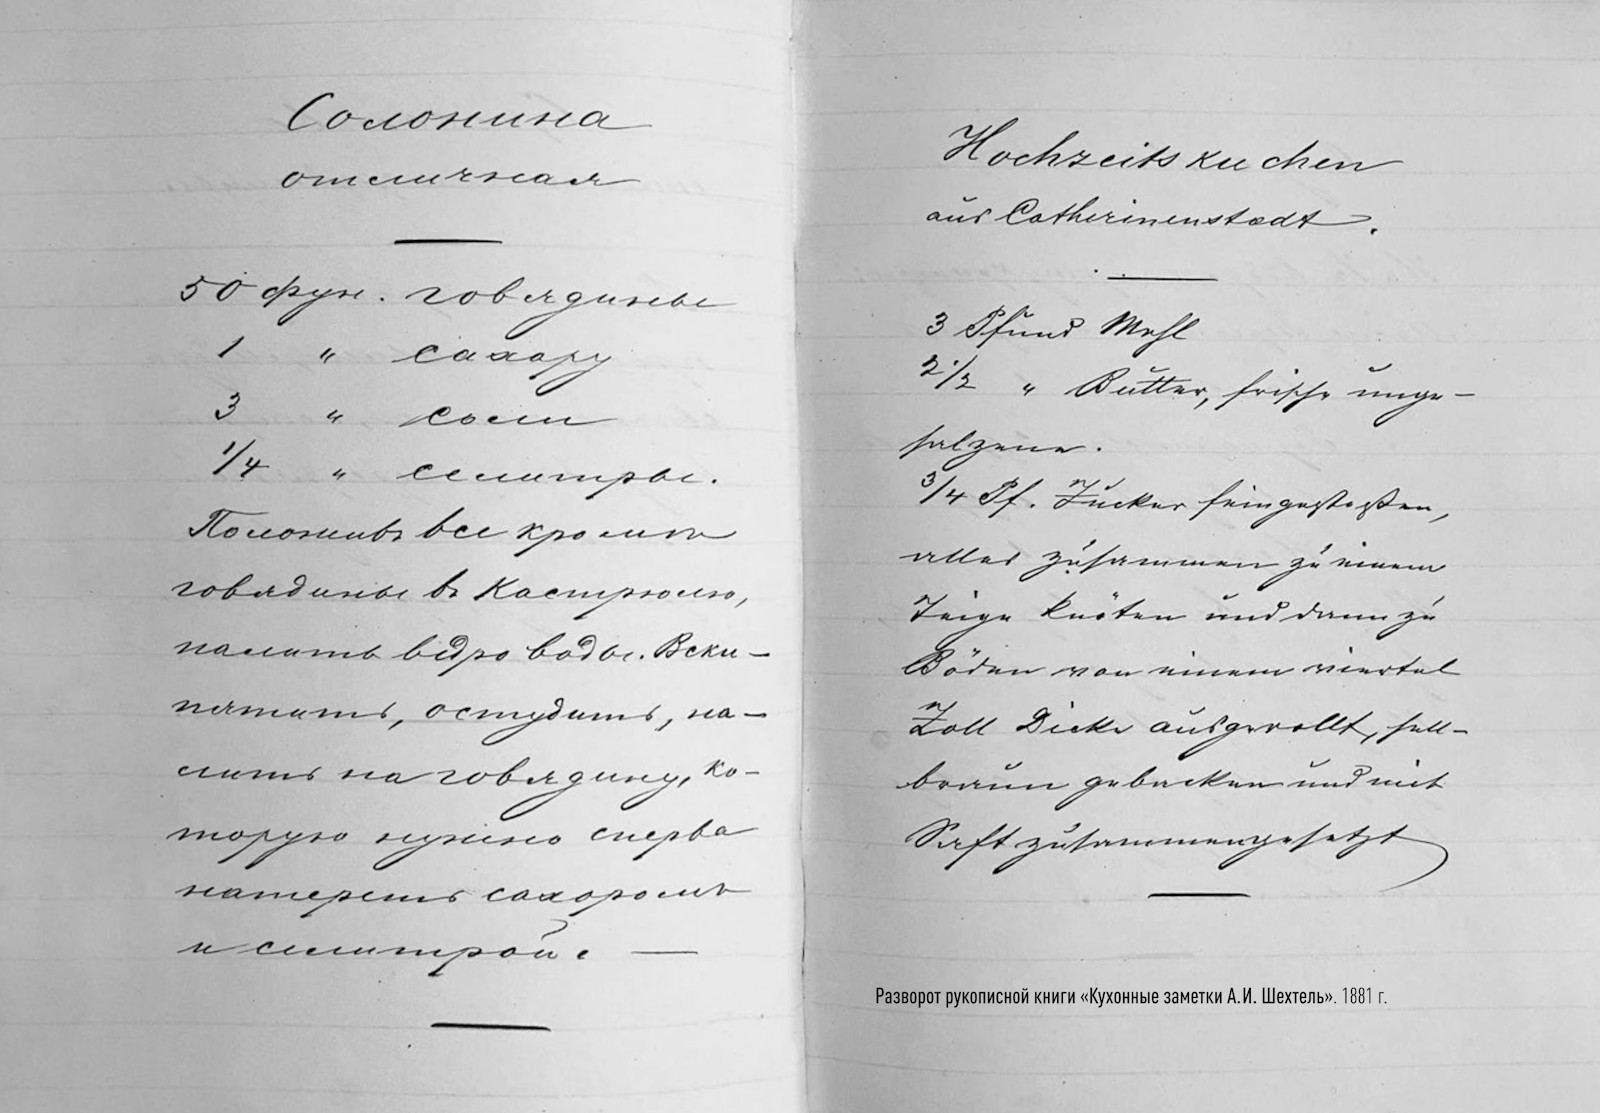 Солонина
отличная
50 фун. говядины
1 " сахару
3 " соли
1/4 " селитры.
Положивъ все кромѣ
говядины въ Кастрюлю,
налить ведро воды. Вски-
пятить, остудить, на-
лить на говядину, ко-
торую нужно сперва
натереть сахоромъ
и селитрой. —
Hochzeitskuchen
aus Catherinenstadt.
3 Pfund Mehl
2 1/2 " Butter, frische unge-
salzene.
3/4 Pf. Zucker feingestoßen,
alles zusammen zu einem
Teige knäten und dann zu
Böden von einem viertel
Zoll Dicke ausgerollt, hell-
braun gebacken und mit
Saft zusammengesetzt
Разворот рукописной книги «Кухонные заметки А.И. Шехтель». 1881 г.